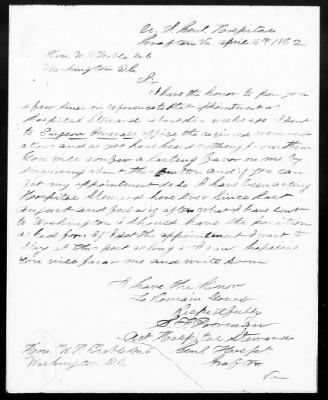 U. S. Genl Hospital
Grafton Va. April 4th 1862
Hon. W. P. Noble M.C.
Washington D.C.
Sir
I have the honor to pen you
a few lines in reference to that appointment as
Hospital Steward about six weeks ago I sent
to Surgeon General office the required recommend
ations and as yet have heard nothing from them
You will confer a lasting favor on me by
enquiring about this matter and if you can
get my appointment do so I have been acting
Hospital Steward here ever since last
August and feel as if after what I have sent
to Washington I should have the position
asked for. If I get the appointment I want to
stay at this post as long as I can hopeing
you will favor me and write soon
I have the honor
to Remain Yours
Respectfully
S. F. Poorman
Act Hospital Steward
Genl Hospt
Grafton
Hon. W. P. Noble M.C.
Washington D.C.
Va